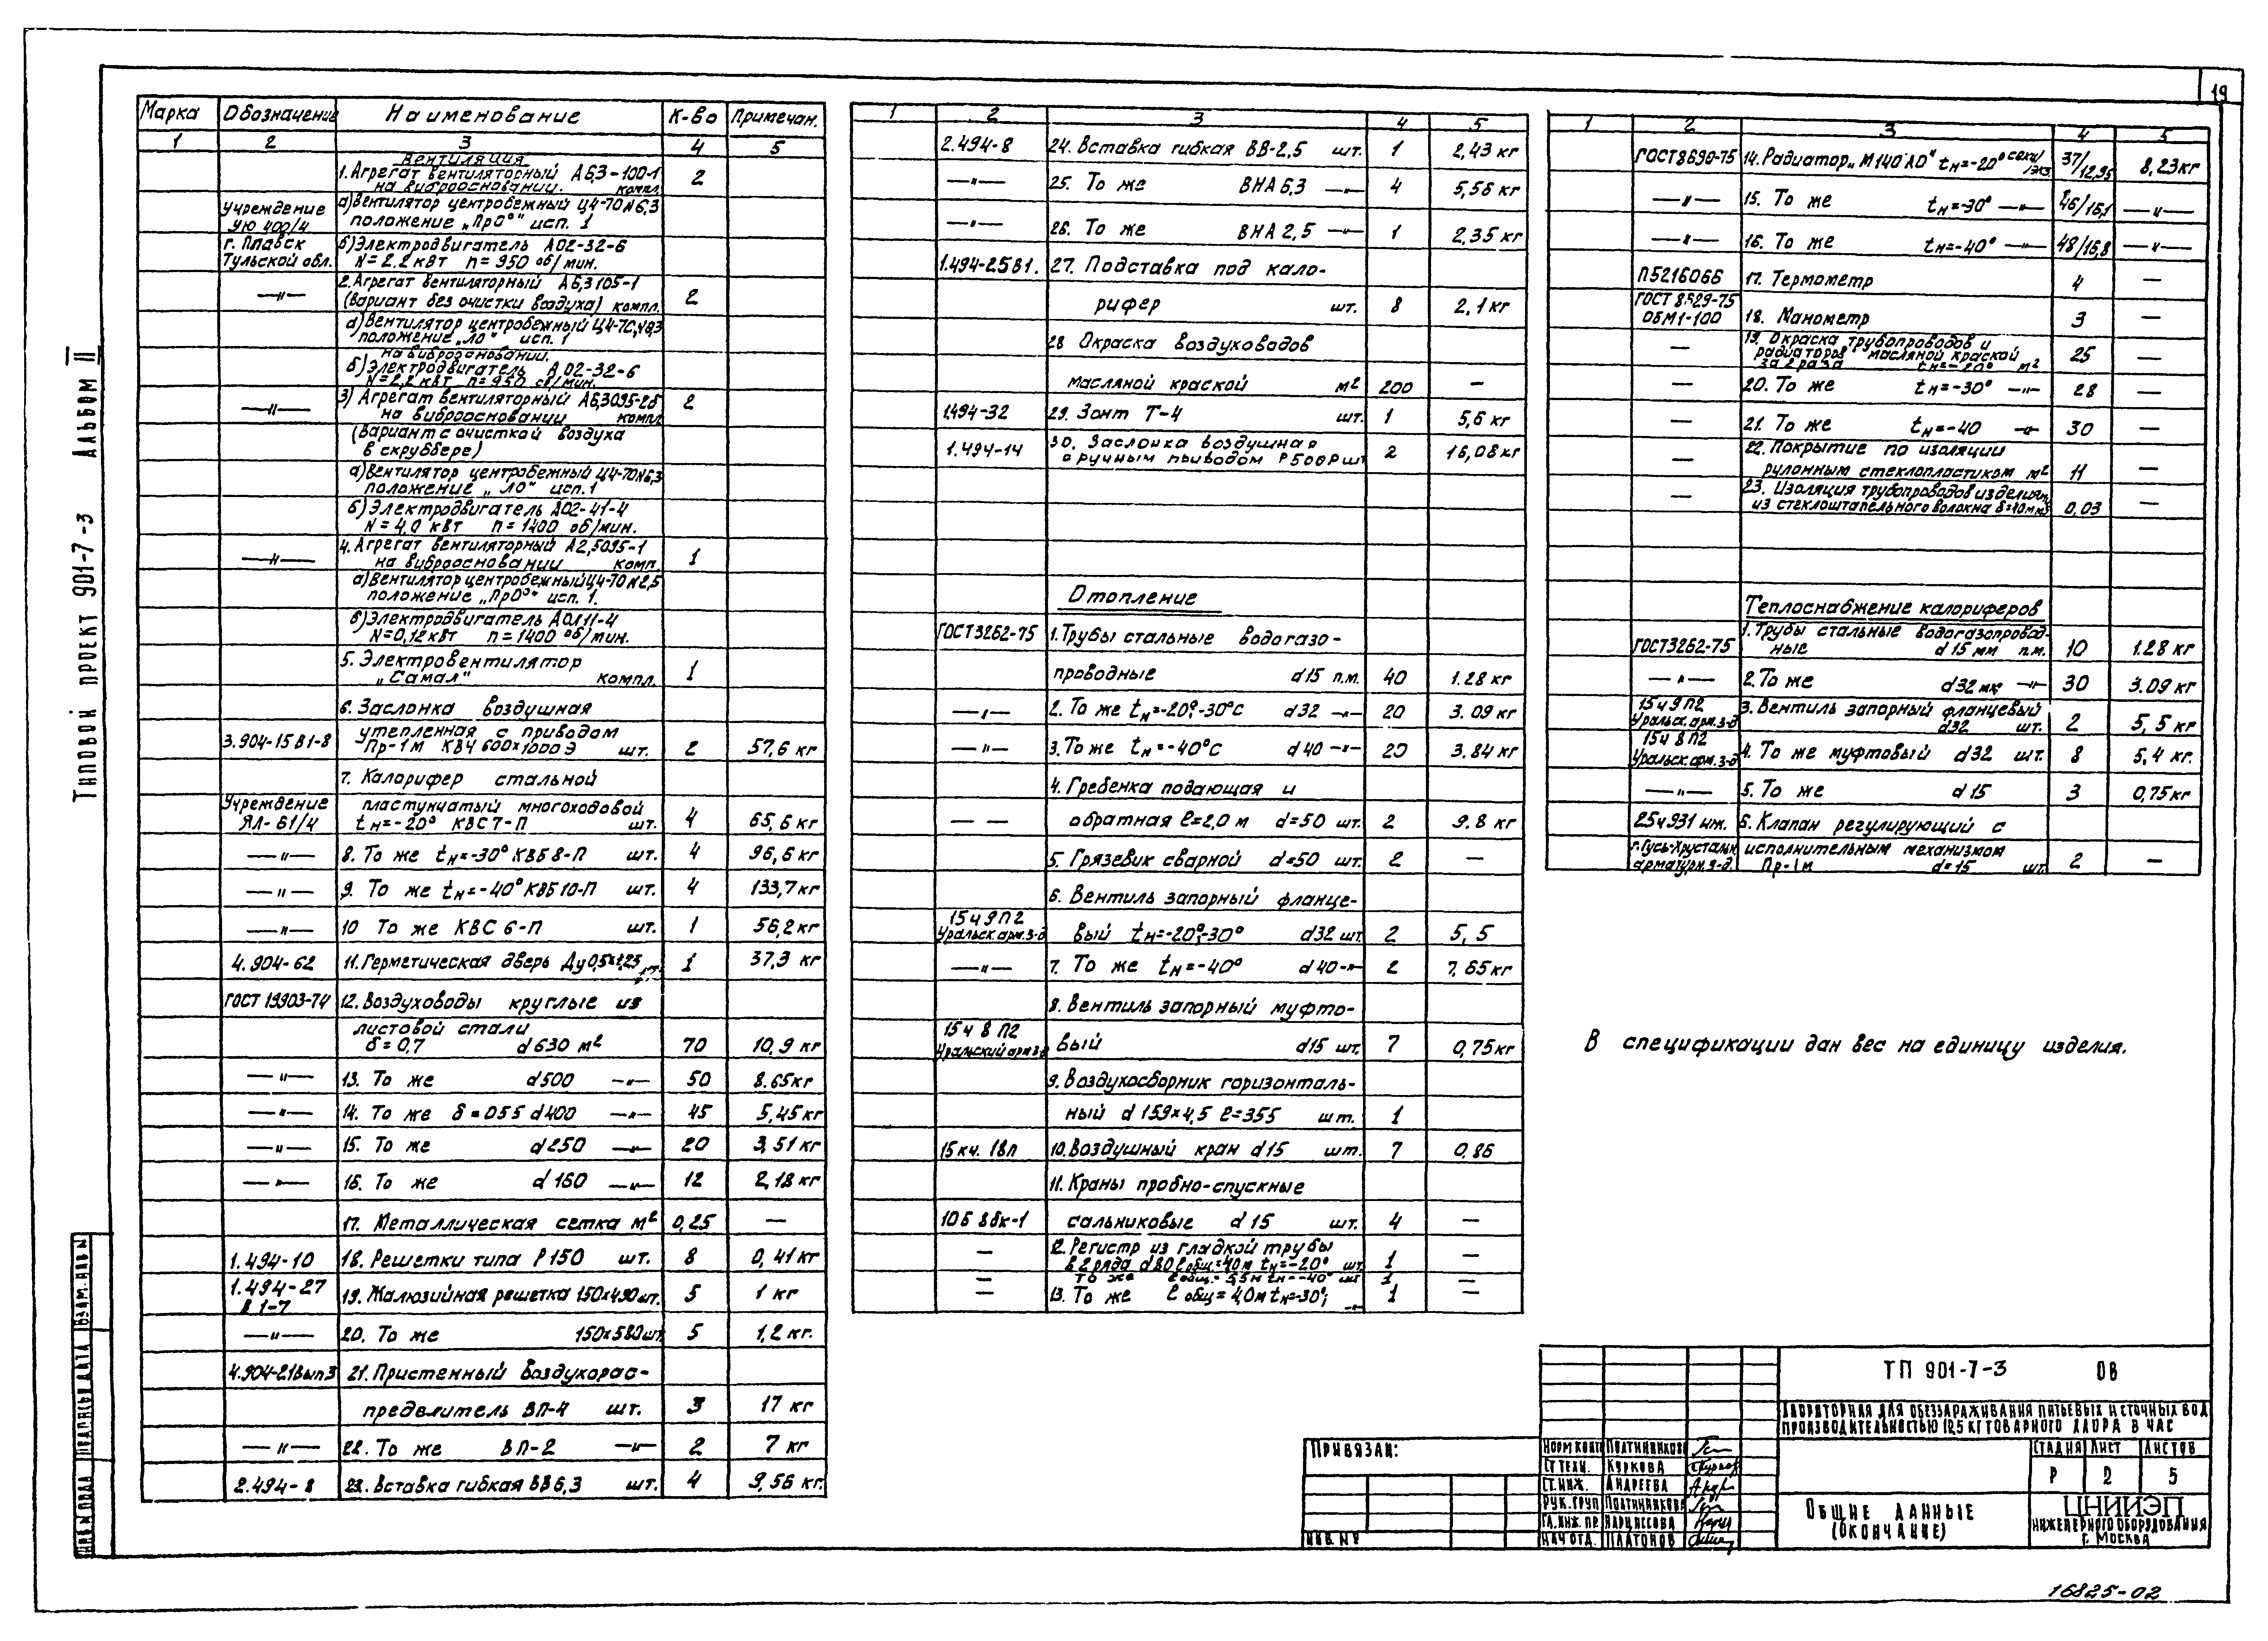 19
Типовой проект 901-7-3 Альбом II
Марка Обозначение Наименование К-во Примечан.
1 2 3 4 5
Вентиляция
1. Агрегат вентиляторный А6,3-100-1 2
на виброосновании. компл.
Учреждение а) Вентилятор центробежный Ц4-70 №6,3
УЮ 400/4 положение „Пр0°" исп. 1
г. Плавск б) Электродвигатель АО2-32-6
Тульской обл. N=2,2 кВт n=950 об/мин.
—"— 2. Агрегат вентиляторный А6,3105-1
(Вариант без очистки воздуха) компл. 2
а) Вентилятор центробежный Ц4-70
положение „Л0" исп. 1
на виброосновании.
б) Электродвигатель АО2-32-6
N=2,2 кВт n=950 об/мин.
—"— 3) Агрегат вентиляторный А6,3095-2б 2
на виброосновании компл
(Вариант с очисткой воздуха
в скруббере)
а) Вентилятор центробежный Ц4-70 №6,3
положение „Л0" исп. 1
б) Электродвигатель АО2-41-4
N=4,0 кВт n=1400 об/мин.
—"— 4. Агрегат вентиляторный А2,5095-1
на виброосновании комп. 1
а) Вентилятор центробежный Ц4-70 №2,5
положение „Пр0°" исп. 1.
б) Электродвигатель АОЛ11-4
N=0,12 кВт n=1400 об/мин.
5. Электровентилятор
„Самал" компл. 1
6. Заслонка воздушная
утепленная с приводом
3.904-15 В1-8 Пр-1м КВЧ 600×1000 Э шт. 2 57,6 кг
7. Калорифер стальной
Учреждение пластинчатый многоходовой
ЯЛ-61/4 tн=-20° КВС 7-П шт. 4 65,6 кг
—"— 8. То же tн=-30° КВБ 8-П шт. 4 96,6 кг
—"— 9. То же tн=-40° КВБ 10-П шт. 4 133,7 кг
—"— 10 То же КВС 6-П шт. 1 56,2 кг
4.904-62 11. Герметическая дверь Ду 0,5×1,25 шт. 1 37,3 кг
ГОСТ 19903-74 12. Воздуховоды круглые из
листовой стали
δ=0,7 d630 м² 70 10,9 кг
—"— 13. То же d500 —"— 50 8.65 кг
—"— 14. То же δ=055 d400 —"— 45 5,45 кг
—"— 15. То же d250 —"— 20 3,51 кг
—"— 16. То же d160 —"— 12 2,18 кг
17. Металлическая сетка м² 0,25 —
1.494-10 18. Решетки типа Р150 шт. 8 0,41 кг
1.494-27
В 1-7 19. Жалюзийная решетка 150×490 шт. 5 1 кг
—"— 20. То же 150×580 шт 5 1,2 кг.
4.904-21 Вып3 21. Пристенный воздухорас-
пределитель ВП-4 шт. 3 17 кг
—"— 22. То же ВП-2 —"— 2 7 кг
2.494-8 23. Вставка гибкая ВВ 6,3 шт. 4 9,56 кг.
1 2 3 4 5
2.494-8 24. Вставка гибкая ВВ-2,5 шт. 1 2,43 кг
—"— 25. То же ВНА 6,3 —"— 4 5,56 кг
—"— 26. То же ВНА 2,5 —"— 1 2.35 кг
1.494-25 В1. 27. Подставка под кало-
рифер шт. 8 2,1 кг
28 Окраска воздуховодов
масляной краской м² 200 —
1.494-32 29. Зонт Т-4 шт. 1 5,6 кг
1.494-14 30. Заслонка воздушная
с ручным приводом Р500Р шт 2 16,08 кг
Отопление
ГОСТ3262-75 1. Трубы стальные водогазо-
проводные d15 п.м. 40 1.28 кг
—"— 2. То же tн=-20°;-30°с d32 —"— 20 3.09 кг
—"— 3. То же tн=-40°с d40 —"— 20 3.84 кг
4. Гребенка подающая и
— — обратная ℓ=2,0 м d=50 шт. 2 9.8 кг
5. Грязевик сварной d=50 шт. 2 —
6. Вентиль запорный фланце-
15ч 9П2
Уральск. арм. з-д вый tн=-20°;-30° d32 шт. 2 5,5
—"— 7. То же tн=-40° d40 —"— 2 7,65 кг
8. Вентиль запорный муфто-
15ч 8 П2
Уральский арм з-д вый d15 шт. 7 0,75 кг
9. Воздухосборник горизонталь-
ный d159×4,5 ℓ=355 шт. 1
15кч. 18п 10. Воздушный кран d15 шт. 7 0,86
11. Краны пробно-спускные
10Б 8бк-1 сальниковые d15 шт. 4 —
— 12. Регистр из гладкой трубы
в 2 ряда d80 ℓобщ.=40м tн=-20° шт. 1 —
— то же ℓобщ.=5,5м tн=-40° шт 1 —
— 13. То же ℓобщ=4,0м tн=-30°; —"— 1 —
1 2 3 4 5
ГОСТ8690-75 14. Радиатор „М140 АО" tн=-20° секц/экз 37/12,95 8,23 кг
—"— 15. То же tн=-30° —"— 46/16,1 —"—
—"— 16. То же tн=-40° —"— 48/16,8 —"—
П5216066 17. Термометр 4 —
ГОСТ 8629-75
ОБМ1-100 18. Манометр 3 —
— 19. Окраска трубопроводов и
радиаторов масляной краской
за 2 раза tн=-20° м² 25 —
— 20. То же tн=-30° —"— 28 —
— 21. То же tн=-40 —"— 30 —
— 22. Покрытие по изоляции
рулонным стеклопластиком м² 11 —
— 23. Изоляция трубопроводов изделиями
из стеклоштапельного волокна δ=40мм 0,03 —
Теплоснабжение калориферов
1. Трубы стальные водогазопровод-
ГОСТ3262-75 ные d15 мм п.м. 10 1.28 кг
—"— 2. То же d32 мм —"— 30 3.09 кг
15ч 9П2 3. Вентиль запорный фланцевый
Уральск. арм. з-д d32 шт. 2 5,5 кг
15ч 8 П2
Уральск. арм. з-д 4. То же муфтовый d32 шт. 8 5,4 кг.
—"— 5. То же d15 3 0,75 кг
25ч931 нж. 6. Клапан регулирующий с
г. Гусь-Хрусталн. исполнительным механизмом
арматурн. з-д. Пр-1м d=15 шт. 2 —
В спецификации дан вес на единицу изделия.
Привязан:
Инв. №
ТП 901-7-3 ОВ
Хлораторная для обеззараживания питьевых и сточных вод
производительностью 12,5 кг товарного хлора в час
Норм конт Полтинникова
Ст техн. Куркова
Ст. инж. Андреева
Рук. груп Полтинникова
Гл. инж. пр. Нарциссова
Нач отд. Платонов
Стадия Лист Листов
Р 2 5
Общие данные
(окончание)
ЦНИИЭП
инженерного оборудования
г. Москва
Инв № подл Подпись и дата Взам. инв №
16825-02